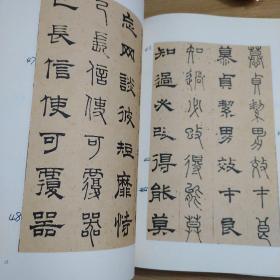 慕貞絜男效才良
慕貞絜男效才良
知過必改得能莫
知過必改得能莫
忘网談彼短靡恃
己長信使可覆器
己長信使可覆器
47
48